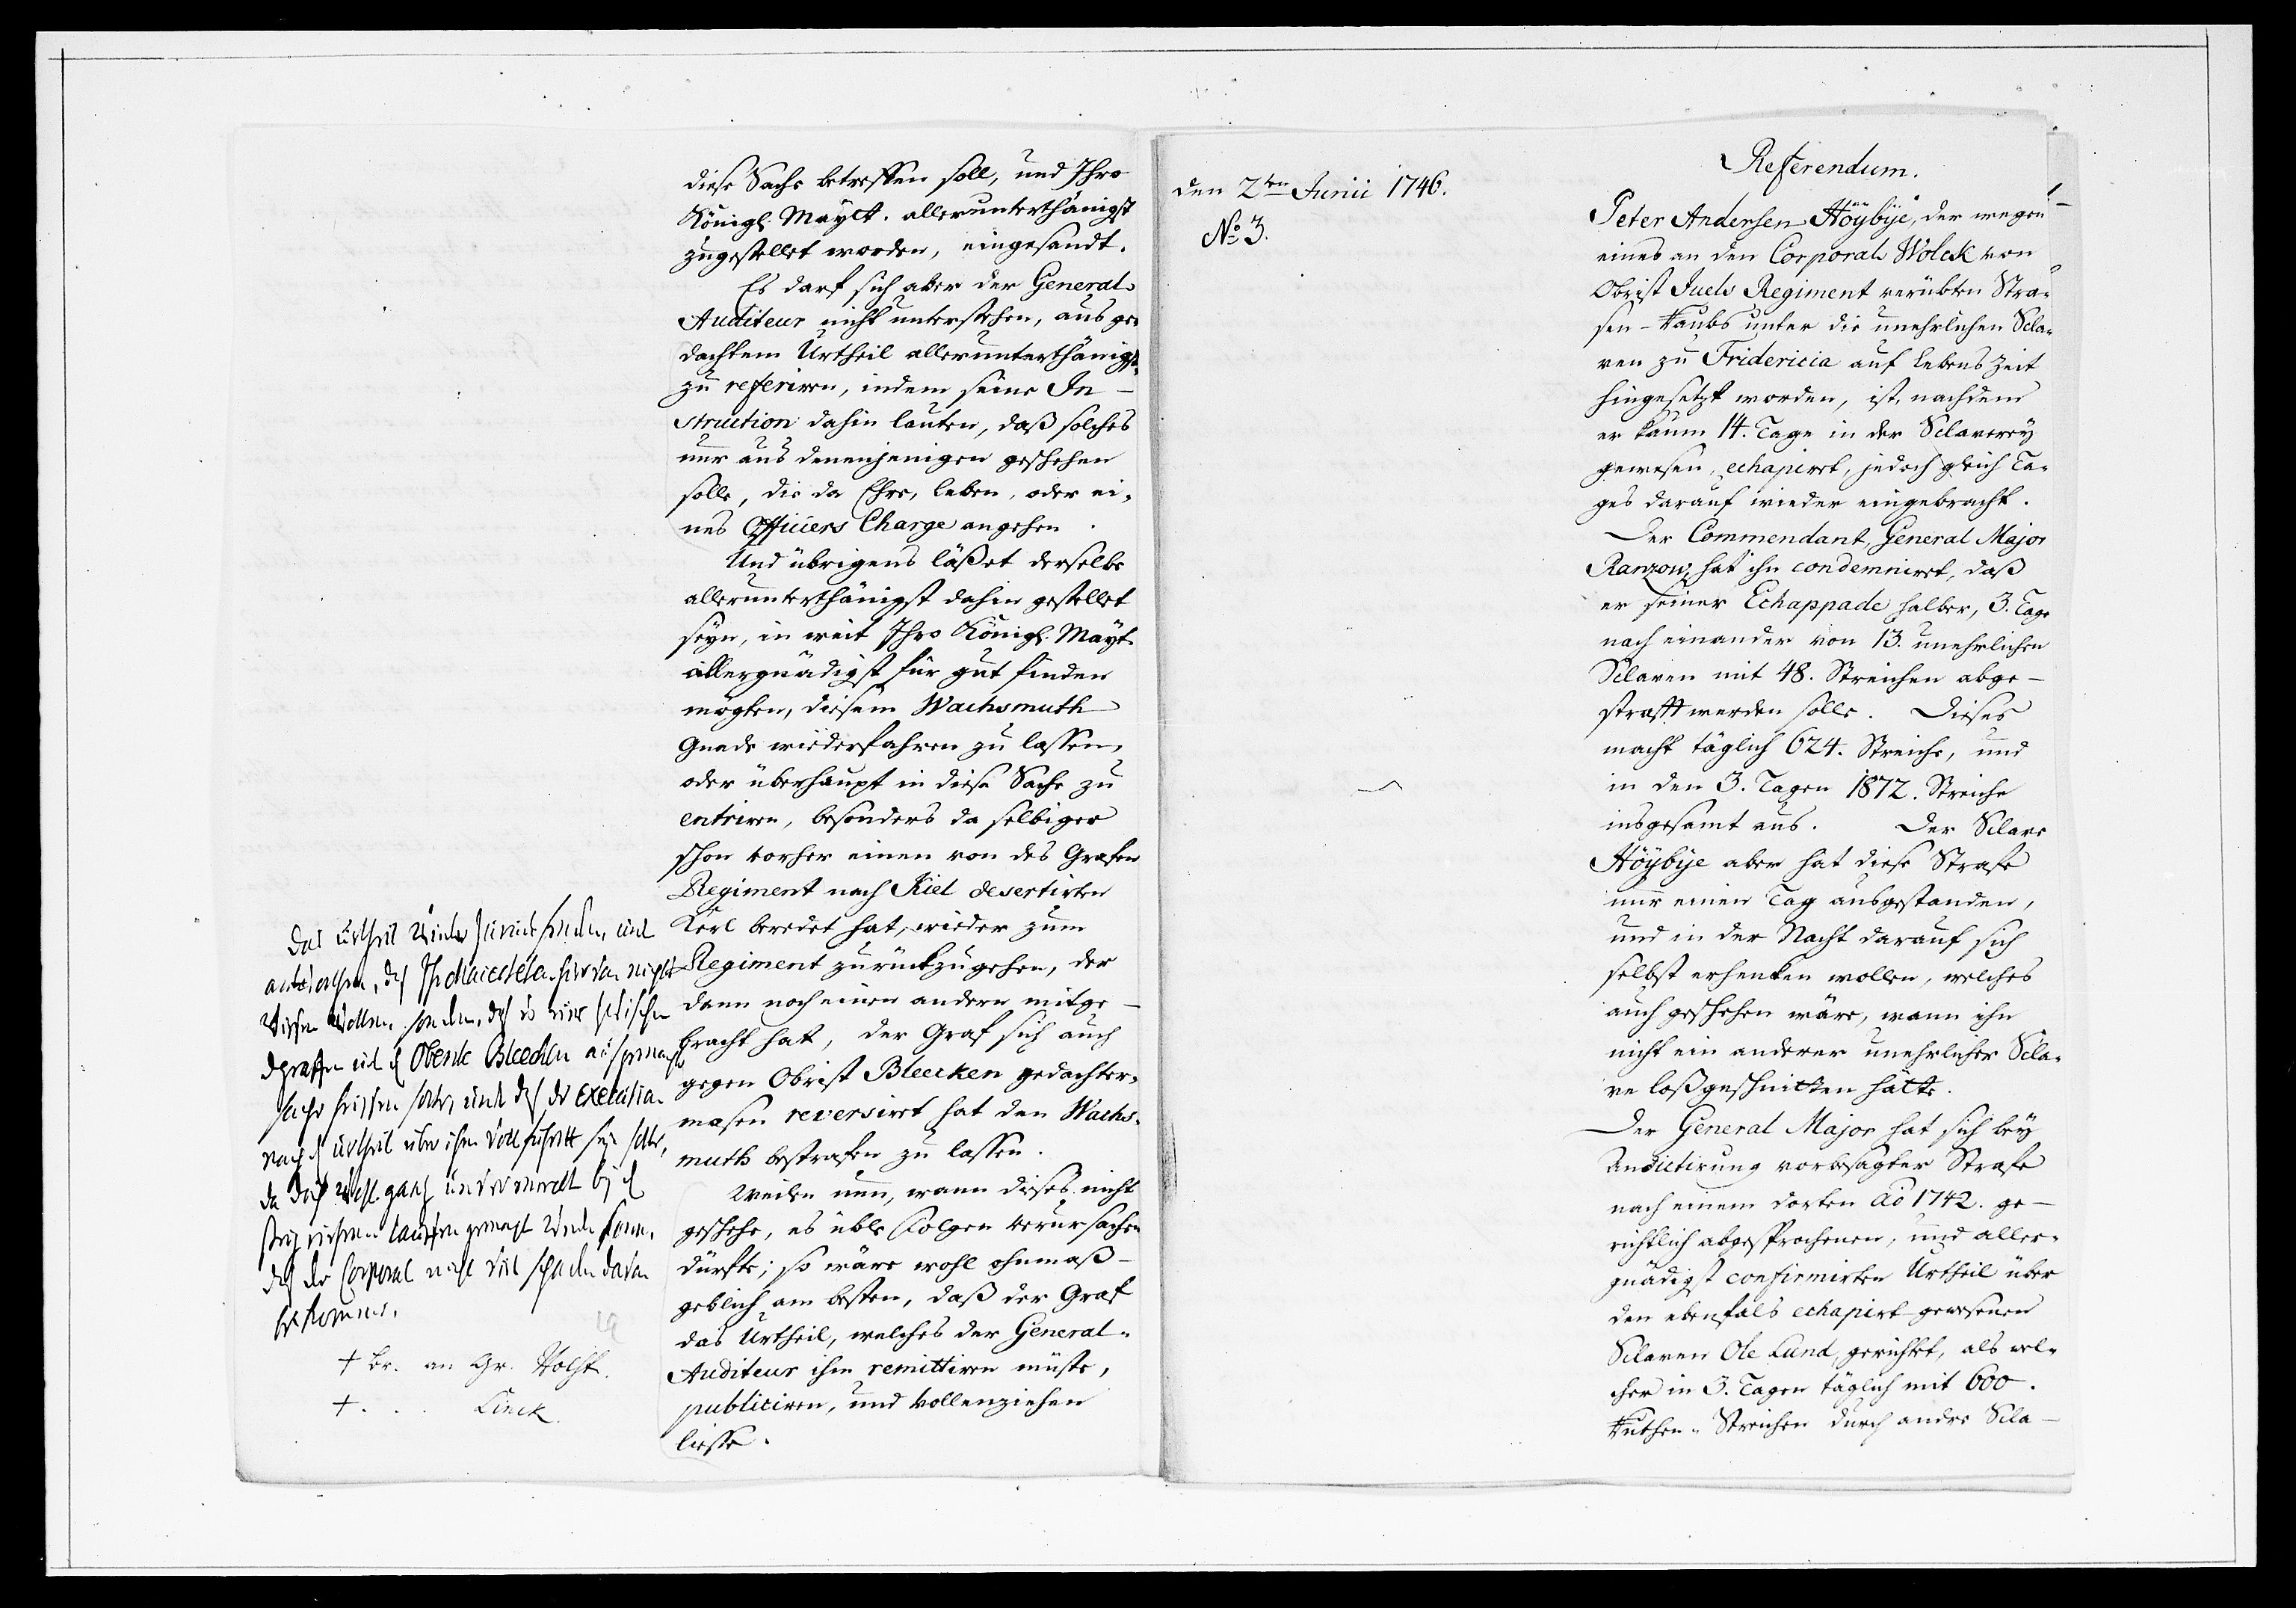 diese Sache betreffen soll, und Ihro
Königl. Maytt. allerunterthänigst
zugestellet worden, eingesandt.
Es darf sich aber der General-
Auditeur nicht unterstehen, aus ge-
dachtem Urtheil allerunterthänigst
zu referiren, indem seine In-
struction dahin lauten, daß solches
nur aus denenjenigen geschehen
solle, die da Ehre, leben, oder ei-
nes Officiers Charge angehen.
Und übrigens läßet derselbe
allerunterthänigst dahin gestellet
seyn, in weit Ihro Königl. Mayt.
allergnädigst für gut finden
mögten, diesem Wachsmuth
Gnade wiederfahren zu lassen,
oder überhaupt in diese Sache zu
entriren, besonders da selbiger
schon vorher einen von des Grafen
Regiment nach Kiel desertirten
Kerl beredet hat, wieder zum
Regiment zurückzugehen, der
dann noch einen andern mitge-
bracht hat, der Graf sich auch
gegen Obrist Bleecken gedachter-
masen reversirt hat den Wachs-
muth bestrafen zu lassen.
Weilen nun, wann dieses nicht
geschehe, es üble Folgen verursachen
dürfte; so wäre wohl ohnmaß-
geblich am besten, daß der Graf
das Urtheil, welches der General-
Auditeur ihm remittiren müste,
publiciren, und vollenziehen
liesse.
das urtheil
antworten, das nicht
wissen wollen, sondern, das es eine
Obente Bleecken
sache heissen solte, und das die execution
nach urtheil über ihm vollführet seyn solte,
da doch wohl ganz
lauffen gemacht werden konne,
das der Corporal nicht viel schaden davon
bekomme.
+ Br. an Gr. Holst.
+ . . . Linck.
den 2ten Junii 1746.
No 3.
Referendum.
Peter Andersen Höybye, der wegen
eines an den Corporal Wolck von
Obrist Juels Regiment verübten Stra-
sen-Raubs unter die unehrlichen Scla-
ven zu Fridericia auf lebens Zeit
hingesetzt worden, ist, nachdem
er kaum 14. Tage in der Sclaverey
gewesen, echapiret, jedoch gleich Ta-
ges darauf wieder eingebracht.
Der Commendant, General Major
Ranzow, hat ihn condemniret, daß
er seiner Echappade halber, 3. Tage
nach einander von 13. unehrlichen
Sclaven mit 48. Streichen abge-
strafft werden solle. Dieses
macht täglich 624. Streiche, und
in den 3. Tagen 1872. Streiche
insgesamt aus. Der Sclave
Höybye aber hat diese Strafe
nur einen Tag ausgestanden,
und in der Nacht darauf sich
selbst erhenken wollen, welches
auch geschehen wäre, wann ihn
nicht ein anderer unehrlicher Scla-
ve loßgeschnitten hätte.
Der General Major hat sich bey
Andictirung vorbesagter Strafe
nach einem dorten Ao 1742. ge-
richtlich abgesprochenen, und aller-
gnädigst confirmirten Urtheil über
den ebenfals echapirt gewesenen
Sclaven Ole Lund, gerichtet, als wel-
cher in 3. Tagen täglich mit 600.
Ruthen-Streichen durch andre Scla-